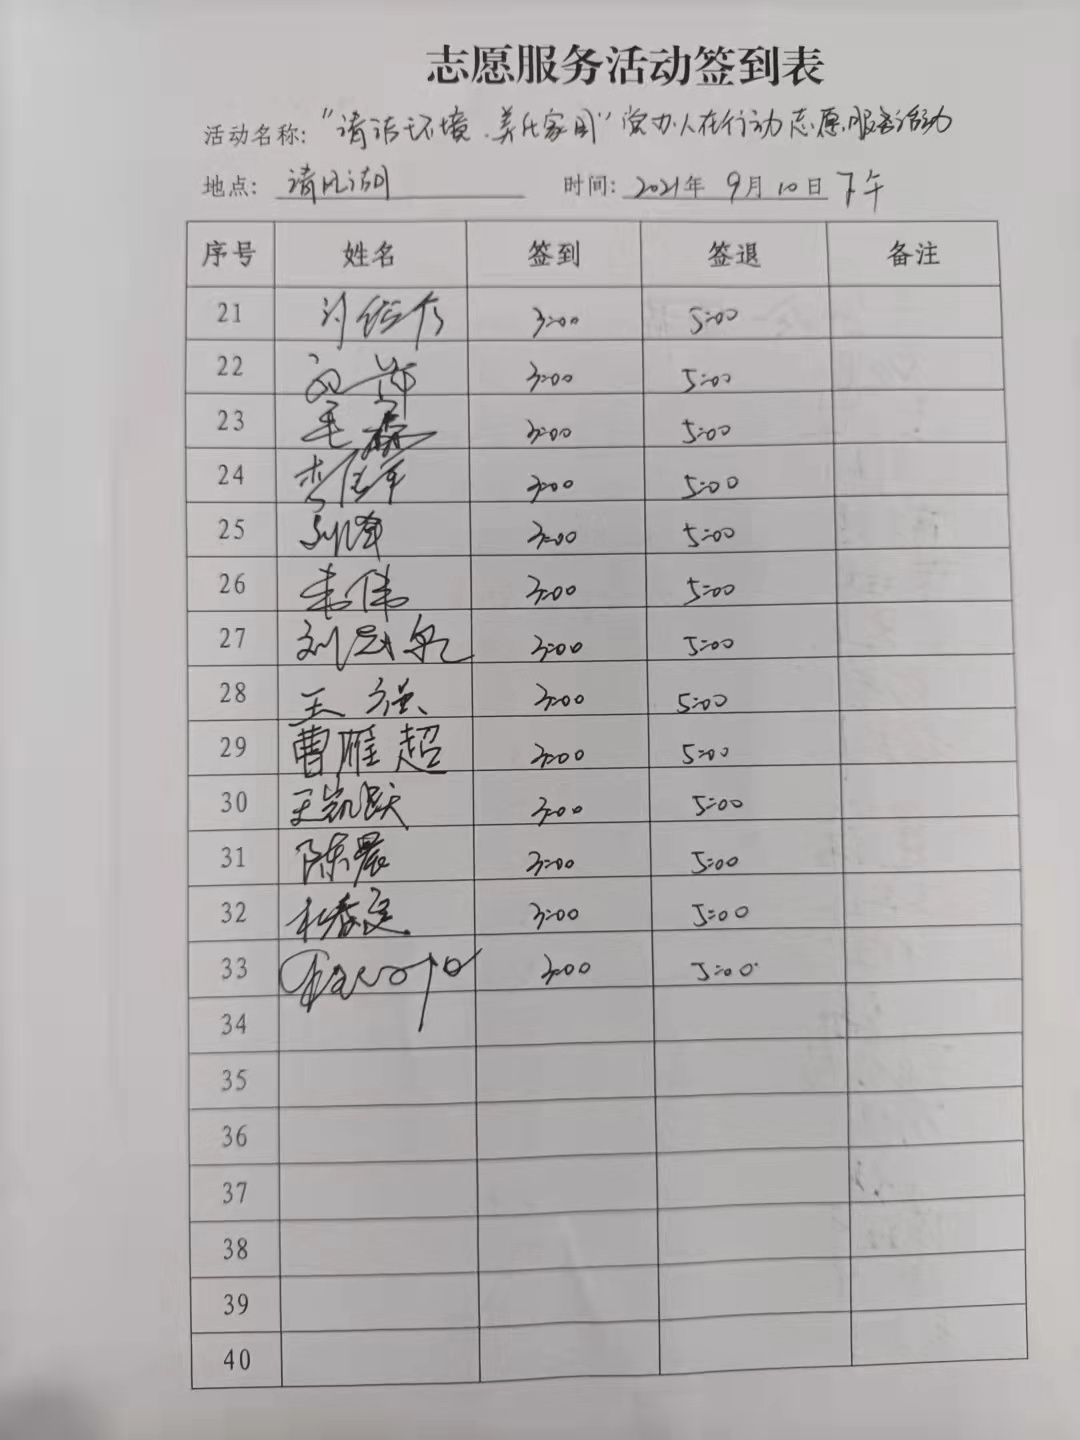 志愿服务活动签到表
活动名称:"清洁环境.美化家园"党办人在行动志愿服务活动
地点: 清风湖 时间: 2021年 9月 10日 下午
序号 姓名 签到 签退 备注
21 3:00 5:00
22 3:00 5:00
23 毛森 3:00 5:00
24 李佳军 3:00 5:00
25 3:00 5:00
26 韦伟 3:00 5:00
27 3:00 5:00
28 王强 3:00 5:00
29 曹雁超 3:00 5:00
30 王凯跃 3:00 5:00
31 陈晨 3:00 5:00
32 杜春庭 3:00 5:00
33 3:00 5:00
34
35
36
37
38
39
40